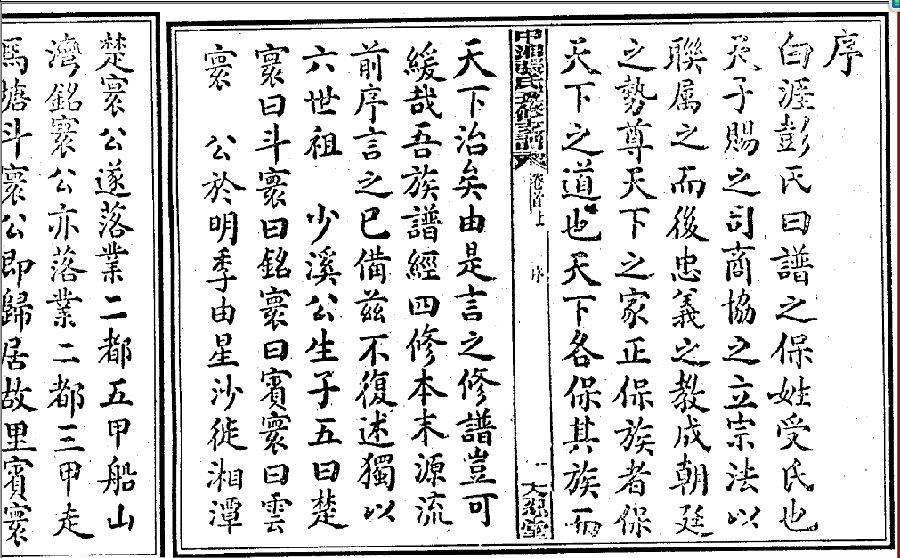 序
白涯彭氏曰譜之保姓受氏也
天子賜之司商協之立宗法以
聯属之而後忠義之教成朝廷
之勢尊天下之家正保族者保
天下之道也天下各保其族而
卷首上 序 一
天下治矣由是言之修譜豈可
緩哉吾族譜經四修本末源流
前序言之已備茲不復述獨以
六世祖 少溪公生子五曰楚
寰曰斗寰曰銘寰曰賓寰曰雲
寰 公於明季由星沙徙湘潭
楚寰公遂落業二都五甲船山
灣銘寰公亦落業二都三甲走
馬塘斗寰公即歸居故里賓寰